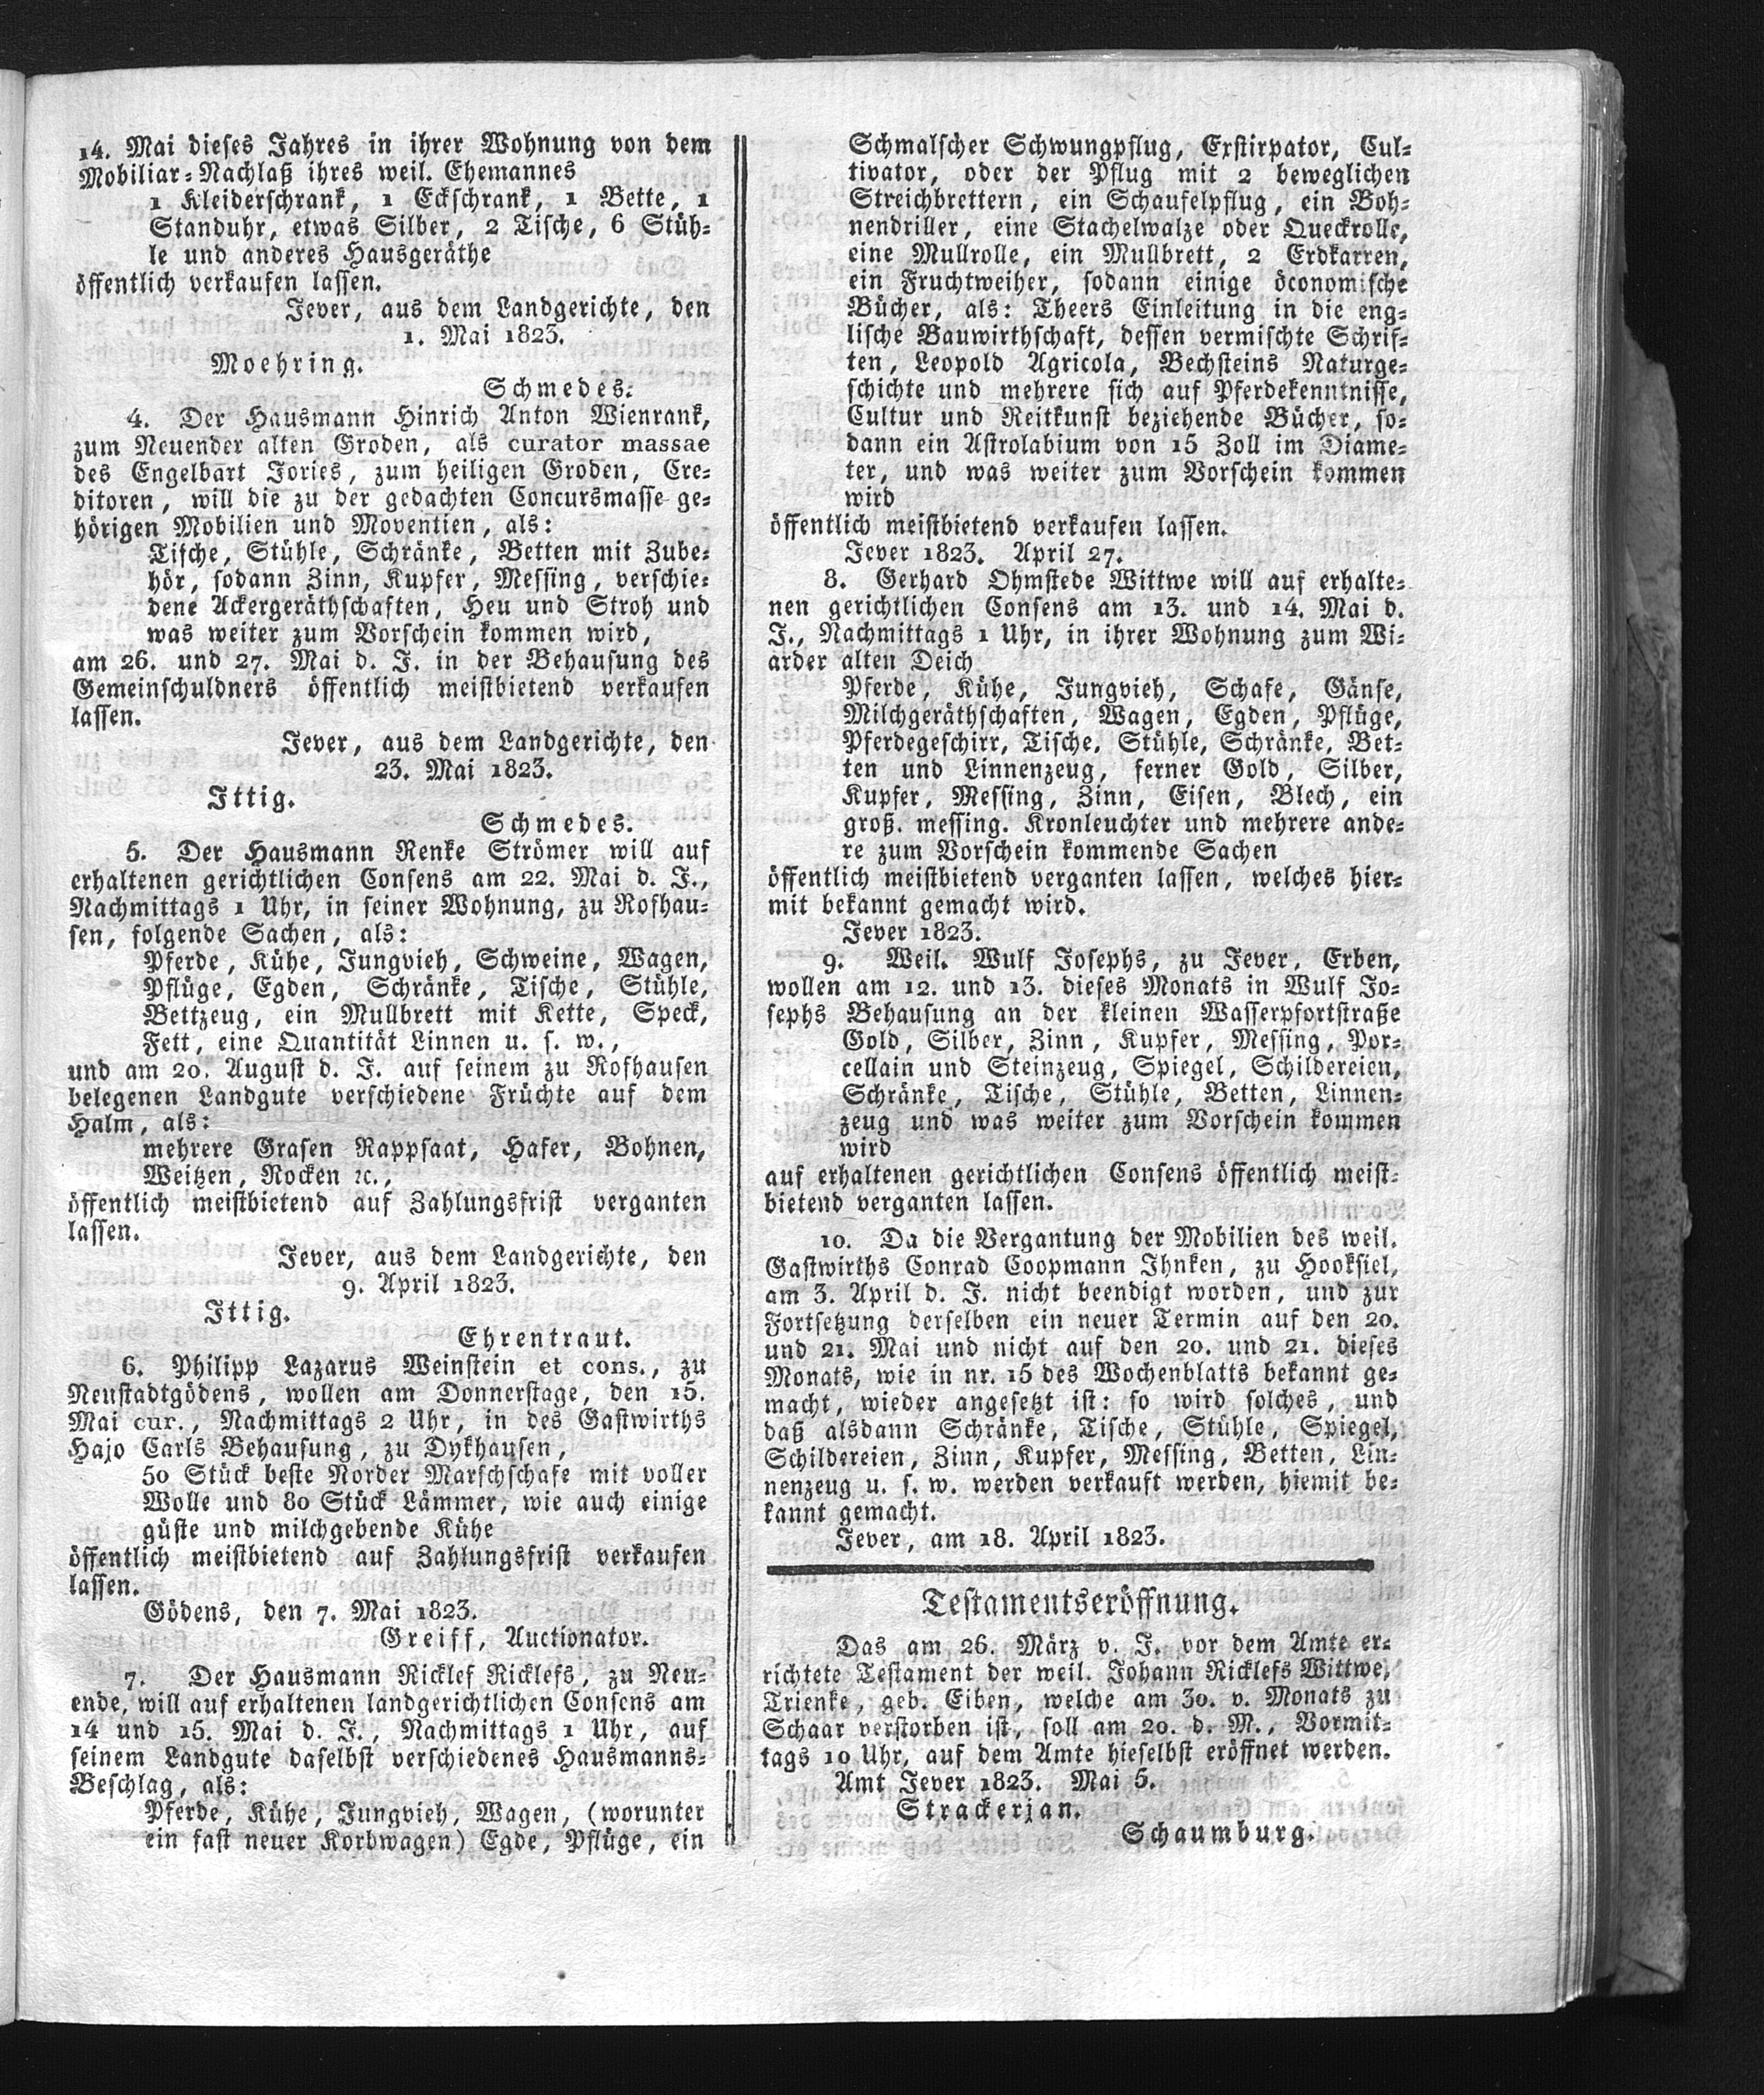 14. Mai dieses Jahres in ihrer Wohnung von dem
Mobiliar-Nachlaß ihres weil. Ehemannes
1 Kleiderschrank, 1 Eckschrank, 1 Bette, 1
Standuhr, etwas Silber, 2 Tische, 6 Stüh-
le und anderes Hausgeräthe
öffentlich verkaufen lassen.
Jever, aus dem Landgerichte, den
1. Mai 1823.
Moehring.
Schmedes.
4. Der Hausmann Hinrich Anton Wienrank,
zum Neuender alten Groden, als curator massae
des Engelbart Jories, zum heiligen Groden, Cre-
ditoren, will die zu der gedachten Concursmasse ge-
hörigen Mobilien und Moventien, als:
Tische, Stühle, Schränke, Betten mit Zube-
hör, sodann Zinn, Kupfer, Messing, verschie-
dene Ackergeräthschaften, Heu und Stroh und
was weiter zum Vorschein kommen wird,
am 26. und 27. Mai d. J. in der Behausung des
Gemeinschuldners öffentlich meistbietend verkaufen
lassen.
Jever, aus dem Landgerichte, den
23. Mai 1823.
Ittig.
Schmedes.
5. Der Hausmann Renke Strömer will auf
erhaltenen gerichtlichen Consens am 22. Mai d. J.,
Nachmittags 1 Uhr, in seiner Wohnung, zu Rofhau-
sen, folgende Sachen, als:
Pferde, Kühe, Jungvieh, Schweine, Wagen,
Pflüge, Egden, Schränke, Tische, Stühle,
Bettzeug, ein Mullbrett mit Kette, Speck,
Fett, eine Quantität Linnen u. s. w.,
und am 20. August d. J. auf seinem zu Rofhausen
belegenen Landgute verschiedene Früchte auf dem
Halm, als:
mehrere Grasen Rappsaat, Hafer, Bohnen,
Weitzen, Rocken ꝛc.,
öffentlich meistbietend auf Zahlungsfrist verganten
lassen.
Jever, aus dem Landgerichte, den
9. April 1823.
Ittig.
Ehrentraut.
6. Philipp Lazarus Weinstein et cons., zu
Neustadtgödens, wollen am Donnerstage, den 15.
Mai cur., Nachmittags 2 Uhr, in des Gastwirths
Hajo Carls Behausung, zu Dykhausen,
50 Stück beste Norder Marschschafe mit voller
Wolle und 80 Stück Lämmer, wie auch einige
güste und milchgebende Kühe
öffentlich meistbietend auf Zahlungsfrist verkaufen
lassen.
Gödens, den 7. Mai 1823.
Greiff, Auctionator.
7. Der Hausmann Ricklef Ricklefs, zu Neu-
ende, will auf erhaltenen landgerichtlichen Consens am
14 und 15. Mai d. J., Nachmittags 1 Uhr, auf
seinem Landgute daselbst verschiedenes Hausmanns-
Beschlag, als:
Pferde, Kühe, Jungvieh, Wagen, (worunter
ein fast neuer Korbwagen) Egde, Pflüge, ein
Schmalscher Schwungpflug, Exstirpator, Cul-
tivator, oder der Pflug mit 2 beweglichen
Streichbrettern, ein Schaufelpflug, ein Boh-
nendriller, eine Stachelwalze oder Queckrolle,
eine Mullrolle, ein Mullbrett, 2 Erdkarren,
ein Fruchtweiher, sodann einige öconomische
Bücher, als: Theers Einleitung in die eng-
lische Bauwirthschaft, dessen vermischte Schrif-
ten, Leopold Agricola, Bechsteins Naturge-
schichte und mehrere sich auf Pferdekenntnisse,
Cultur und Reitkunst beziehende Bücher, so-
dann ein Astrolabium von 15 Zoll im Diame-
ter, und was weiter zum Vorschein kommen
wird
öffentlich meistbietend verkaufen lassen.
Jever 1823. April 27.
8. Gerhard Ohmstede Wittwe will auf erhalte-
nen gerichtlichen Consens am 13. und 14. Mai d.
J., Nachmittags 1 Uhr, in ihrer Wohnung zum Wi-
arder alten Deich
Pferde, Kühe, Jungvieh, Schafe, Gänse,
Milchgeräthschaften, Wagen, Egden, Pflüge,
Pferdegeschirr, Tische, Stühle, Schränke, Bet-
ten und Linnenzeug, ferner Gold, Silber,
Kupfer, Messing, Zinn, Eisen, Blech, ein
groß. messing. Kronleuchter und mehrere ande-
re zum Vorschein kommende Sachen
öffentlich meistbietend verganten lassen, welches hier-
mit bekannt gemacht wird.
Jever 1823.
9. Weil. Wulf Josephs, zu Jever, Erben,
wollen am 12. und 13. dieses Monats in Wulf Jo-
sephs Behausung an der kleinen Wasserpfortstraße
Gold, Silber, Zinn, Kupfer, Messing, Por-
cellain und Steinzeug, Spiegel, Schildereien,
Schränke, Tische, Stühle, Betten, Linnen-
zeug und was weiter zum Vorschein kommen
wird
auf erhaltenen gerichtlichen Consens öffentlich meist-
bietend verganten lassen.
10. Da die Vergantung der Mobilien des weil.
Gastwirths Conrad Coopmann Ihnken, zu Hooksiel,
am 3. April d. J. nicht beendigt worden, und zur
Fortsetzung derselben ein neuer Termin auf den 20.
und 21. Mai und nicht auf den 20. und 21. dieses
Monats, wie in nr. 15 des Wochenblatts bekannt ge-
macht, wieder angesetzt ist: so wird solches, und
daß alsdann Schränke, Tische, Stühle, Spiegel,
Schildereien, Zinn, Kupfer, Messing, Betten, Lin-
nenzeug u. s. w. werden verkauft werden, hiemit be-
kannt gemacht.
Jever, am 18. April 1823.
Testamentseröffnung.
Das am 26. März v. J. vor dem Amte er-
richtete Testament der weil. Johann Ricklefs Wittwe,
Trienke, geb. Eiben, welche am 30. v. Monats zu
Schaar verstorben ist, soll am 20. d. M., Vormit-
tags 10 Uhr, auf dem Amte hieselbst eröffnet werden.
Amt Jever 1823. Mai 5.
Strackerjan.
Schaumburg.